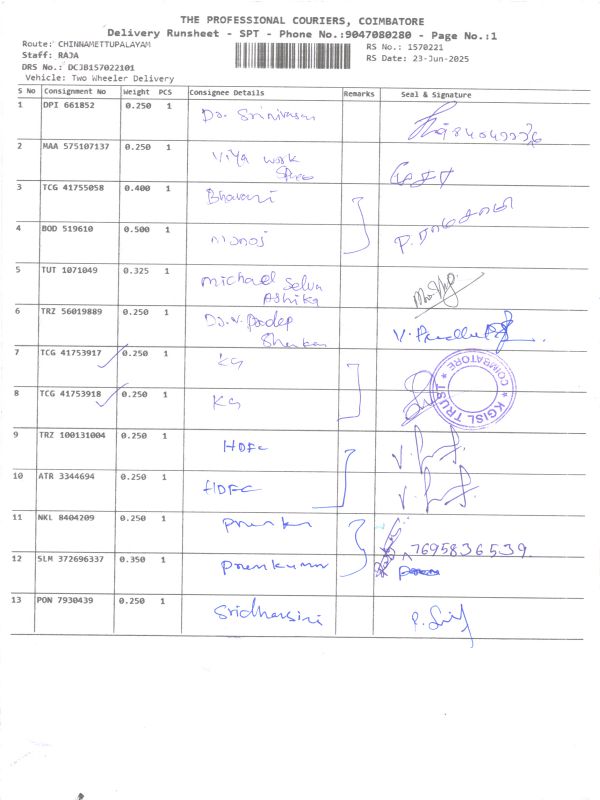 THE PROFESSIONAL COURIERS, COIMBATORE
Delivery Runsheet - SPT - Phone No.:9047080280 - Page No.:1
Route: CHINNAMETTUPALAYAM
RS No.: 1570221
Staff: RAJA
RS Date: 23-Jun-2025
DRS No.: DCJB157022101
Vehicle: Two Wheeler Delivery
S No Consignment No Weight PCS Consignee Details Remarks Seal & Signature
1 DPI 661852 0.250 1 Dr. Srinivasan
2 MAA 575107137 0.250 1 Viya work
3 TCG 41755058 0.400 1 Bhavani
4 BOD 519610 0.500 1 manoj
5 TUT 1071049 0.325 1 Michael Selva
Ashika
6 TRZ 56019889 0.250 1 Dr. V. Pradep
7 TCG 41753917 0.250 1 KG
8 TCG 41753918 0.250 1 KG
KGISL TRUST * COIMBATORE *
9 TRZ 100131004 0.250 1 HDFC
10 ATR 3344694 0.250 1 HDFC
11 NKL 8404209 0.250 1
7695836539
12 SLM 372696337 0.350 1 Premkumar
13 PON 7930439 0.250 1